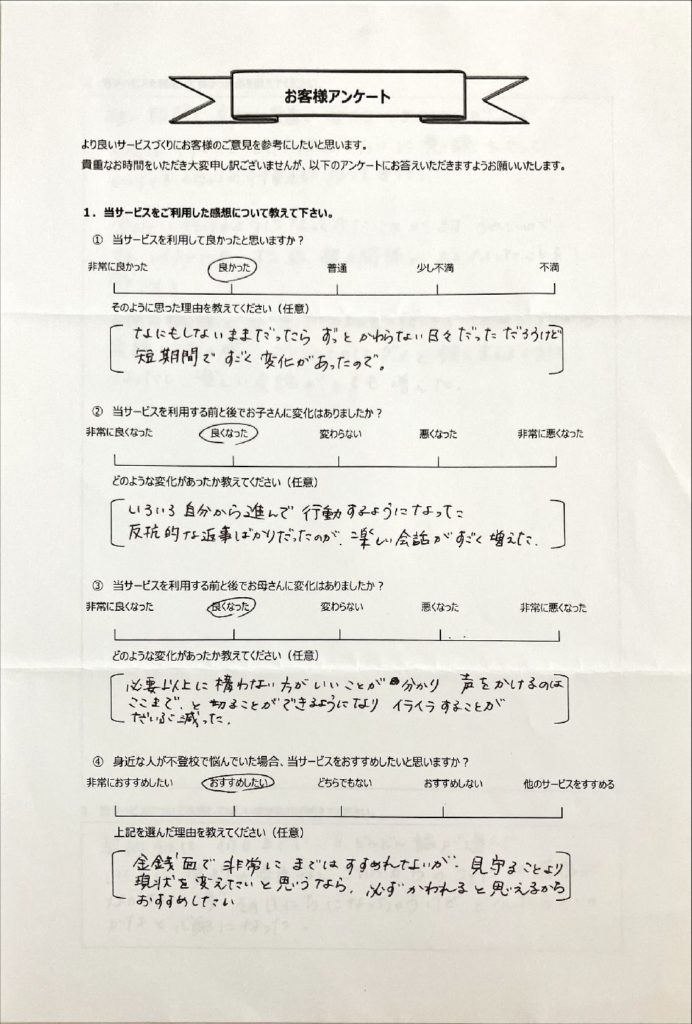 お客様アンケート
より良いサービスづくりにお客様のご意見を参考にしたいと思います。
貴重なお時間をいただき大変申し訳ございませんが、以下のアンケートにお答えいただきますようお願いいたします。
1．当サービスをご利用した感想について教えて下さい。
① 当サービスを利用して良かったと思いますか？
非常に良かった 良かった 普通 少し不満 不満
そのように思った理由を教えてください（任意）
なにもしないままだったら ずっと かわらない日々だっただろうけど
短期間で すごく 変化があったので。
② 当サービスを利用する前と後でお子さんに変化はありましたか？
非常に良くなった 良くなった 変わらない 悪くなった 非常に悪くなった
どのような変化があったか教えてください（任意）
いろいろ 自分から進んで 行動するようになって
反抗的な返事ばかりだったのが、楽しい会話がすごく 増えた。
③ 当サービスを利用する前と後でお母さんに変化はありましたか？
非常に良くなった 良くなった 変わらない 悪くなった 非常に悪くなった
どのような変化があったか教えてください（任意）
必要以上に 構わない方がいいことが 分かり 声をかけるのは
ここまで、と 切ることができるようになり イライラすることが
だいぶ減った。
④ 身近な人が不登校で悩んでいた場合、当サービスをおすすめしたいと思いますか？
非常におすすめしたい おすすめしたい どちらでもない おすすめしない 他のサービスをすすめる
上記を選んだ理由を教えてください（任意）
金銭面で 非常に までは すすめれないが、見守ることより
現状を変えたいと思うなら、必ずかわれると思えるから
おすすめしたい